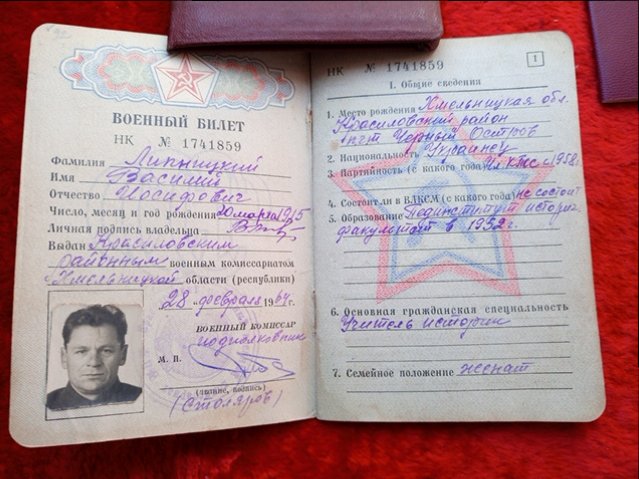 ВОЕННЫЙ БИЛЕТ
НК № 1741859
Фамилия Липницкий
Имя Василий
Отчество Иосифович
Число, месяц и год рождения 20 марта 1915
Личная подпись владельца
Выдан Красиловским
районным военным комиссариатом
Хмельницкой области (республики)
28 февраля 1964 г.
ВОЕННЫЙ КОМИССАР
подполковник
М. П.
(звание, подпись)
(Столяров)
НК № 1741859
1
I. Общие сведения
1. Место рождения Хмельницкая обл.
Красиловский район
пгт Черный Остров
2. Национальность Украинец
3. Партийность (с какого года) Чл. КПСС с 1958 г.
4. Состоял ли в ВЛКСМ (с какого года) не состоит
5. Образование Пединститут историч.
факультет в 1952 г.
6. Основная гражданская специальность
Учитель истории
7. Семейное положение женат